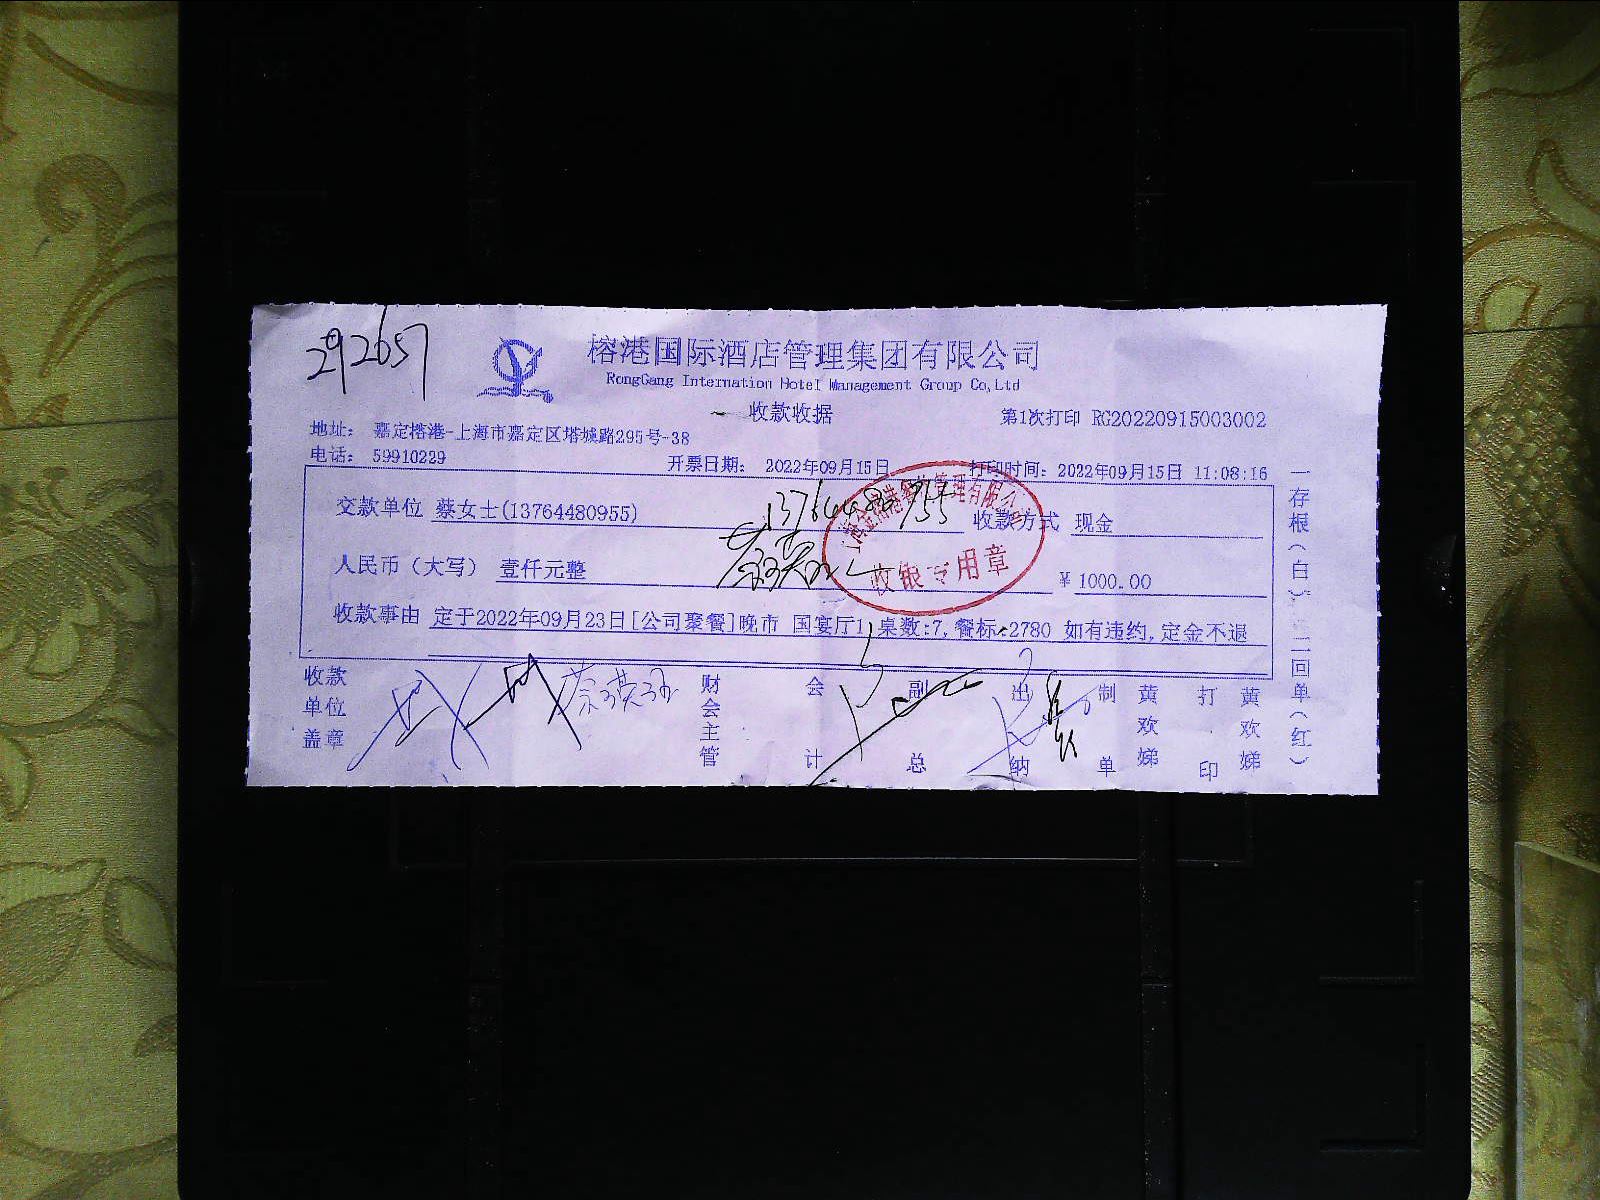 292657
榕港国际酒店管理集团有限公司
RongGang Internation Hotel Management Group Co,Ltd
收款收据
第1次打印 RG20220915003002
地址: 嘉定榕港-上海市嘉定区塔城路295号-38
电话: 59910229
开票日期: 2022年09月15日
打印时间: 2022年09月15日 11:08:16
交款单位 蔡女士(13764480955)
13764480955
收款方式 现金
人民币(大写) 壹仟元整
¥ 1000.00
收银专用章
收款事由 定于2022年09月23日[公司聚餐]晚市 国宴厅1,桌数:7,餐标:2780 如有违约,定金不退
收款单位盖章
财会主管
会计
副总
出纳
制单
黄欢娣
打印
黄欢娣
一存根(白)
二回单(红)